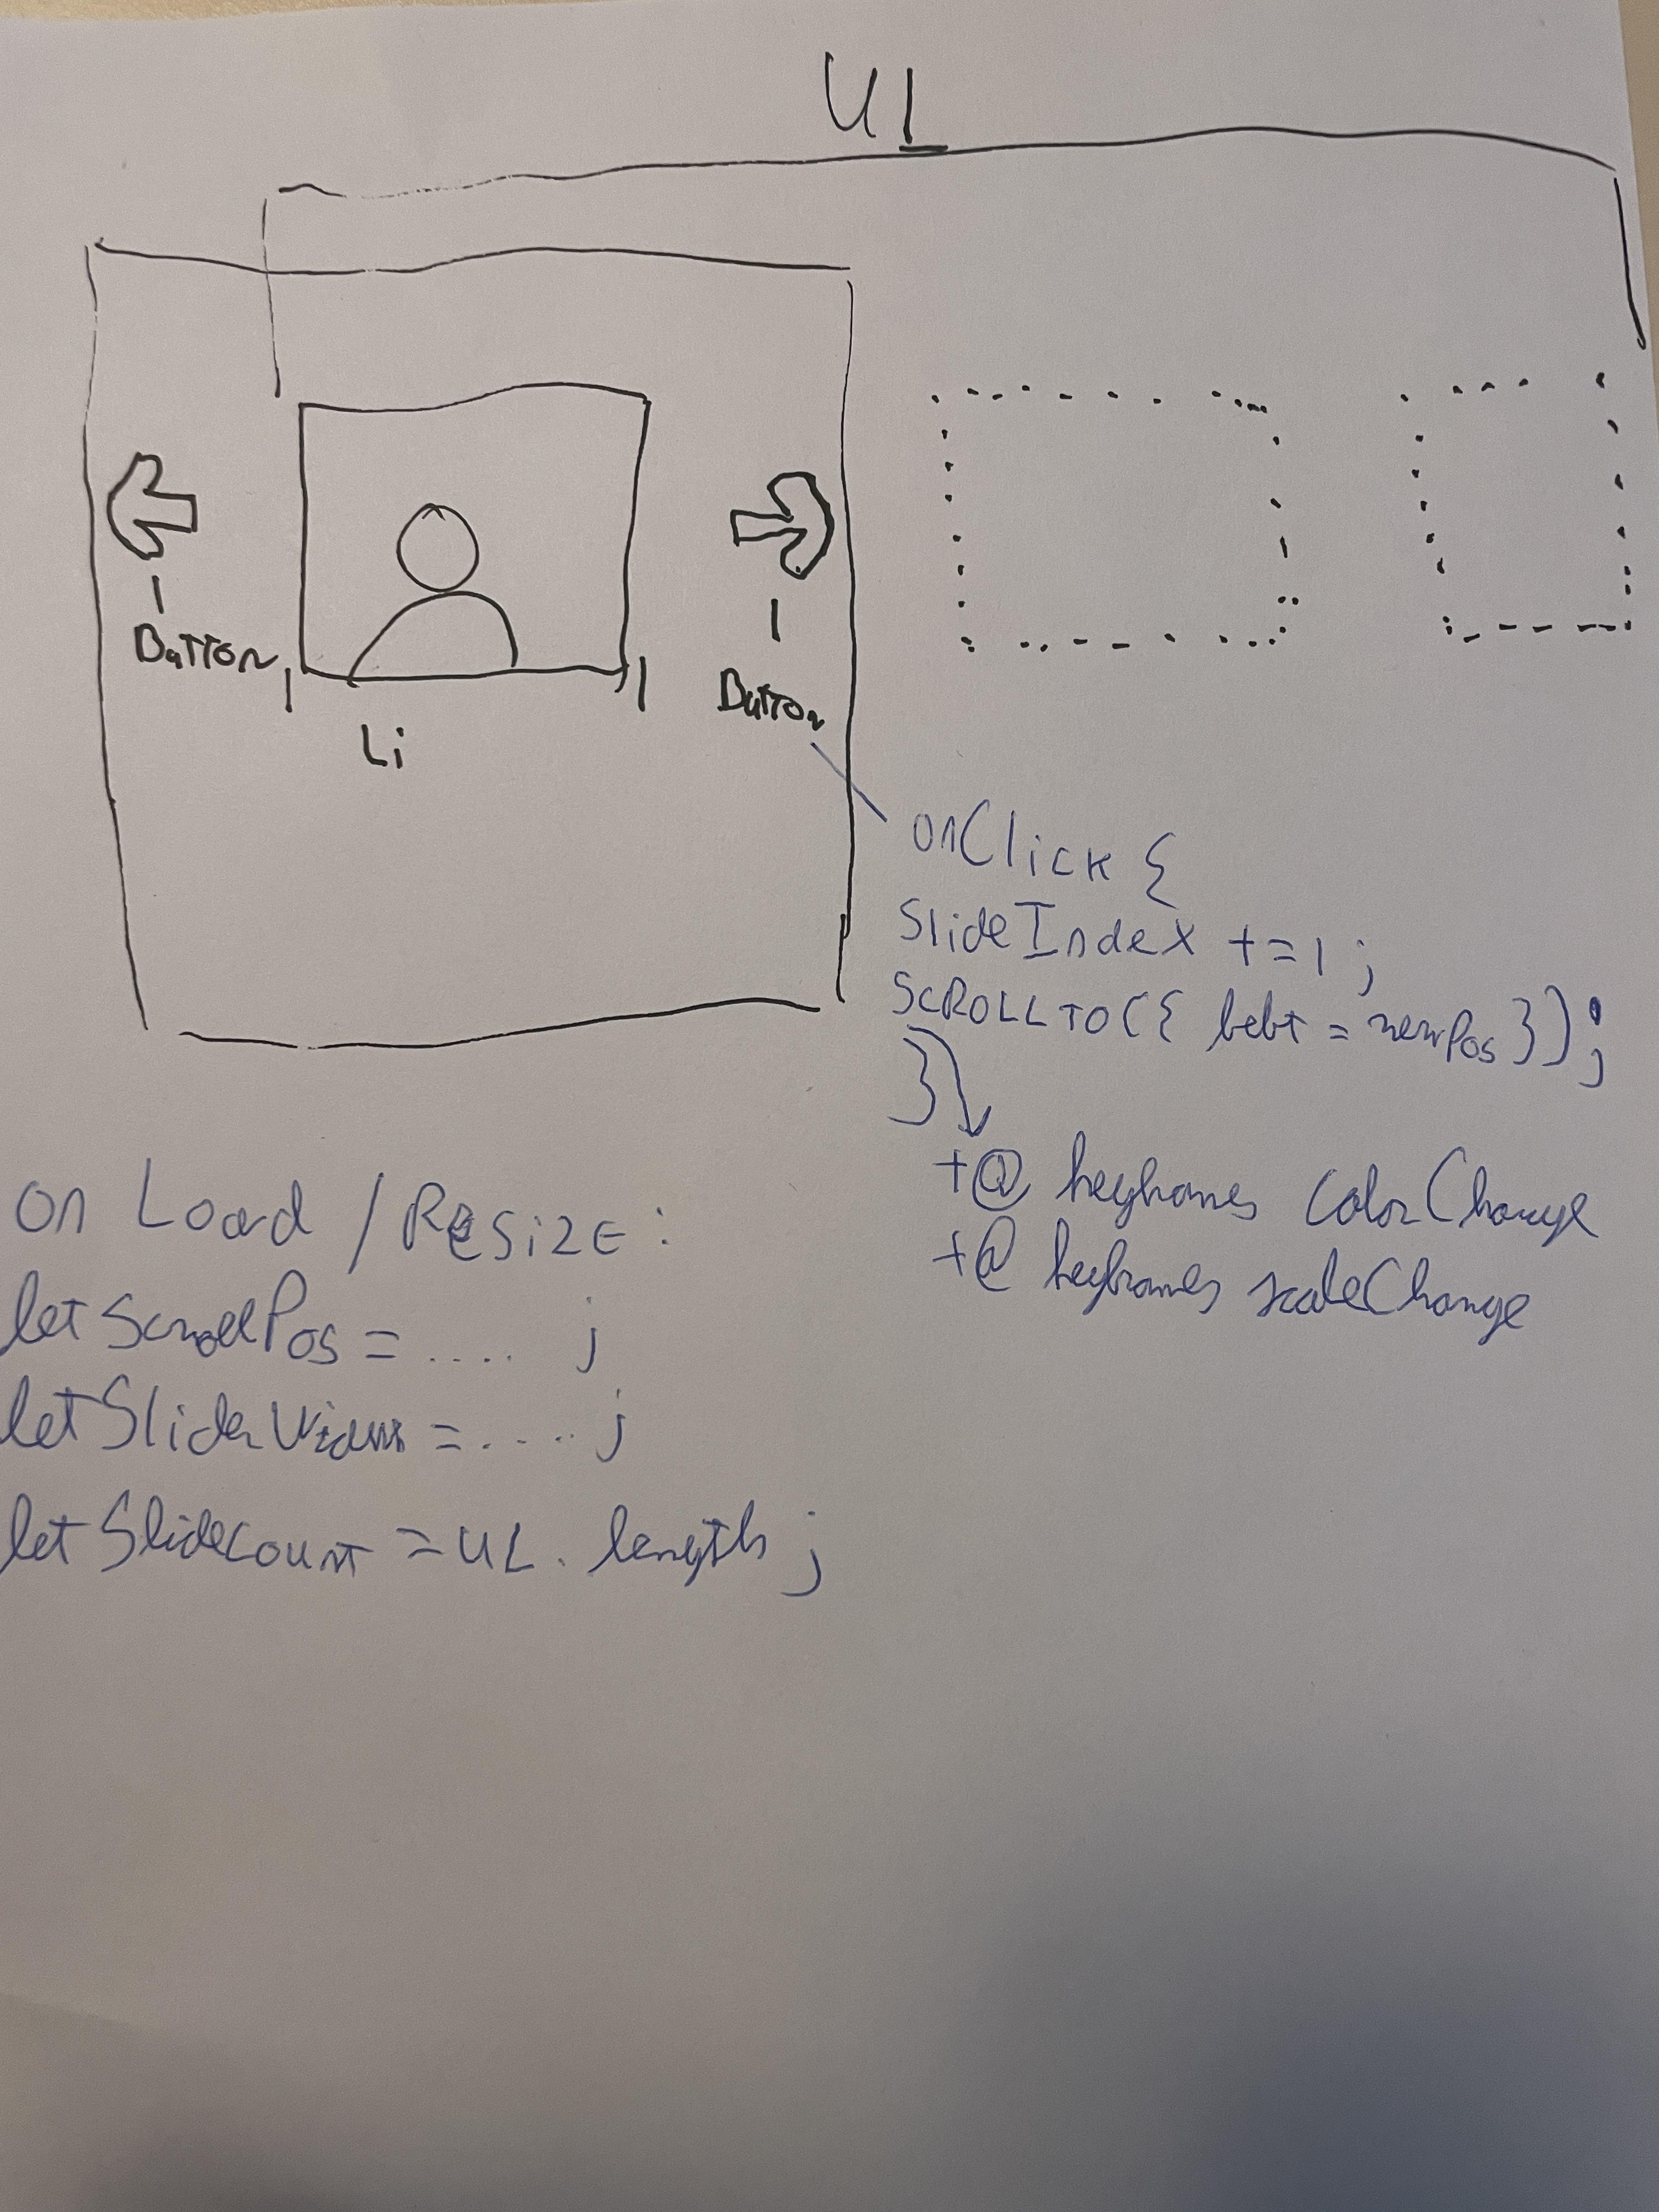 UL
Button
Button
Li
onClick {
SlideIndex +=1 ;
SCROLLTO({ left = newPos });
}
+@ keyframes colorChange
+@ keyframes scaleChange
on Load / Resize :
let ScrollPos = .... ;
let Slider = .... ;
let SlideCount = UL. length ;